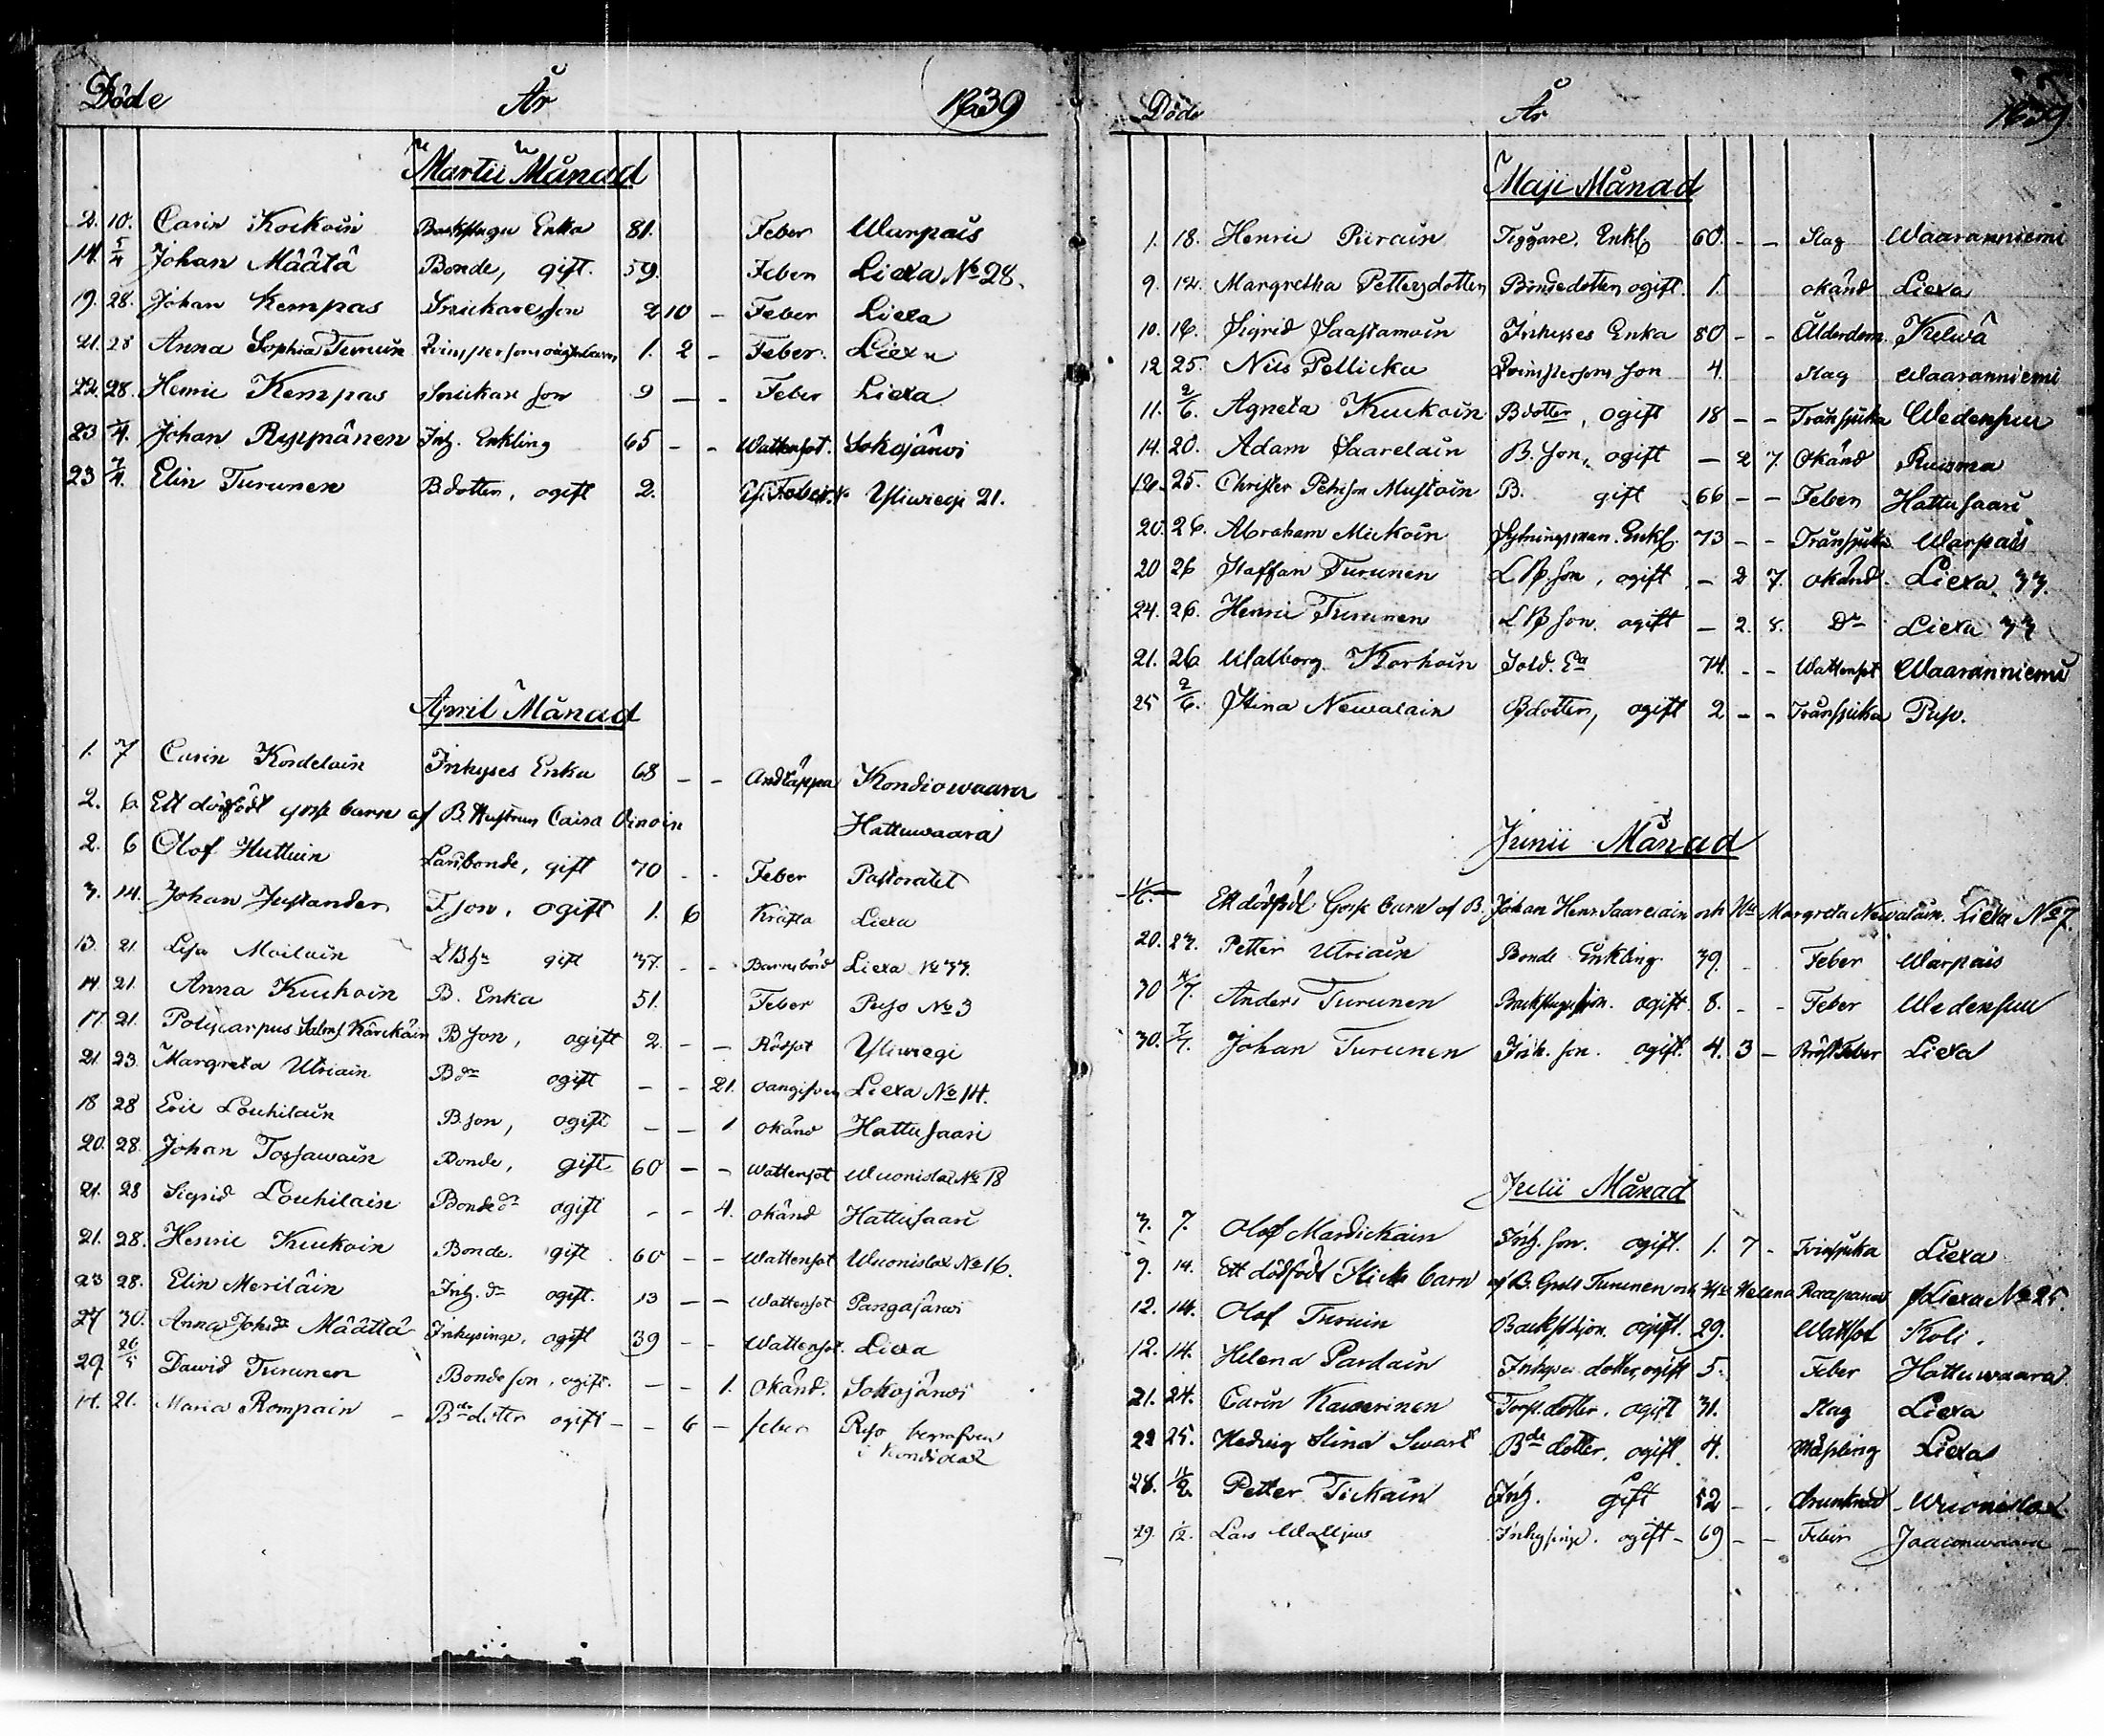 Döde År 1839
Martii Månad
2. 10. Carin Kockoin Backstugu Enka 81. Feber Warpais
14. 5/4 Johan Määtä Bonde, gift. 59. Feber Liexa No 28.
19. 28. Johan Kempas Snickare son 2 10 - Feber Liexa
21. 28 Anna Sophia Turuin 1. 2 - Feber. Liexa
22. 28. Henric Kempas Snickare son 9 - - Feber Liexa
23 7/4. Johan Ryynänen Inh. Enkling 65 - - Wattensot. Sokojärwi
23 7/4. Elin Turunen Bdotter, ogift 2. Feber Yliwiexi 21.
April Månad
1. 7 Carin Kordelain Inhyses Enka 68 - - Andtäppa Kondiowaara
2. 6 Ett dödfödt gosse barn af B. Hustrun Caisa Oinoin Hattuwaara
2. 6 Olof Huttuin Landbonde, gift 70 - - Feber Pastoratet
3. 14. Johan Justander T son, ogift 1. 6 Kräfta Liexa
13. 21. Lisa Moilain gift 37. - - Barnsbörd Liexa No 33.
14 21. Anna Kuckoin B. Enka 51. Feber Puso No 3
17. 21. Polycarpus Salom. Kärckäin B son, ogift 2 - - Rödsot Yliwiegi
21 23. Margreta Utriain B dr ogift - - 21. oangifven Liexa No 14.
18 28 Eric Louhilain B. son, ogift - - 1 okänd Hattusaari
20. 28. Johan Tossawain Bonde, gift 60 - - Wattensot Wuonislax No 18
21. 28 Sigrid Louhilain Bonde dr ogift - - 4. okänd Hattusaari
21. 28. Henric Kuckoin Bonde. gift 60 - - Wattensot Wuonislax No 16.
23 28. Elin Meriläin Inh. dr ogift. 13 - - Wattensot Pangajärwi
27 30. Anna Johsdr Määttä Inhysinge, ogift 39 - - Wattensot. Liexa
29 26/5 Dawid Turunen Bonde son, ogift. - - 1. okänd. Sokojärwi
14. 21. Maria Rompain - Bde dotter ogift - - 6 - feber Puso begrafven
i Kondiolax
Döde År 1839
Maji Månad
1. 18. Henric Piirain Tiggare. Enkl 60. - - Slag Waaranniemi
9. 12. Margretha Pettersdotter Bondedotter, ogift. 1. okänd Liexa
10. 16. Sigrid Saastamoin Inhyses Enka 80 - - Ålderdom. Kelwä
12 25. Nils Pellicka son 4. Slag Waaranniemi
11. 2/6. Agneta Kuckoin B dotter, ogift 18 - - Tränsjuka Wedensuu
14. 20. Adam Saarelain B. son, ogift - 2 7. Okänd Ruisma
12. 25. Christer Petrisson Mustoin B. gift 66 - - Feber Hattusaari
20. 26. Abraham Mickoin Sytningsman. Enkl. 73 - - Trånsjuka Warpais
20 26 Staffan Turunen L B. son, ogift - 2 7. okänd. Liexa. 33.
24. 26. Henric Turunen L B. son. ogift - 2. 8. Do Liexa 33
21. 26 Walborg Korhoin Sold. Ea 74. - - Wattensot Waaranniemi
25 2/6. Stina Newalain B dotter, ogift 2 - - Trånsjuka Puso.
Junii Månad
11/6. Ett dödfödt Gosse barn af B. Johan Henr. Saarelain och Hu Margreta Newalain. Liexa No 7.
20. 23. Petter Utriain Bonde Enkling. 39. - Feber Warpais
30 4/7. Anders Turunen Backstugu son. ogift 8. - - Feber Wedensuu
30. 7/7. Johan Turunen Inh. son. ogift. 4. 3 - Bröst Feber Liexa
Julii Månad
3. 7. Olof Mardickain Inh. son. ogift. 1. 7 - Liexa
9. 14. Ett dödfödt Flicke barn af B. Turunen och Hu Helena Liexa No 25.
12. 14. Olof Turuin Backst. son. ogift. 29. Wattsot Koli.
12. 14. Helena Pardain Inhyses dotter, ogift 5. Feber Hattuwaara
21. 24. Carin Kawerinen Torp. dotter. ogift 31. Slag Liexa
22 25. Hedvig Stina Swart Bde dotter, ogift. 4. Mässling Liexa
28. 11/8. Petter Tickain Inh. gift 52 - - drunknad Wuonislax
29. 12. Lars Walljus Inhysinge. ogift - 69 - - Feber Jaaconwaara